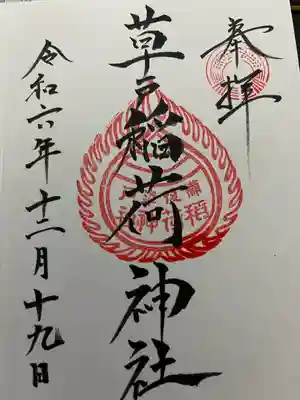 奉拝
草戸稲荷神社
令和六年十二月十九日